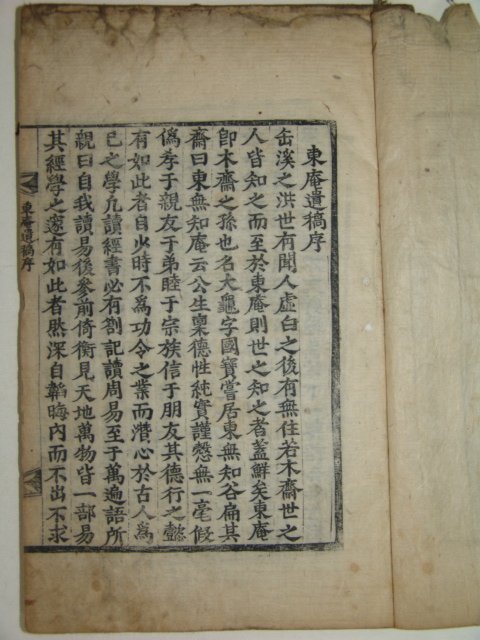 東庵遺稿序
缶溪之洪世有聞人虛白之後有無住若木齋世之
人皆知之而至於東庵則世之知之者盖鮮矣東庵
卽木齋之孫也名大龜字國寶嘗居東無知谷扁其
齋曰東無知庵云公生禀德性純實謹慤無一毫假
僞孝于親友于弟睦于宗族信于朋友其德行之懿
有如此者自少時不爲功令之業而潛心於古人爲
己之學凡讀經書必有劄記讀周易至于萬遍語所
親曰自我讀易後參前倚衡見天地萬物皆一部易
其經學之邃有如此者然深自韜晦内而不出不求
東庵遺稿序